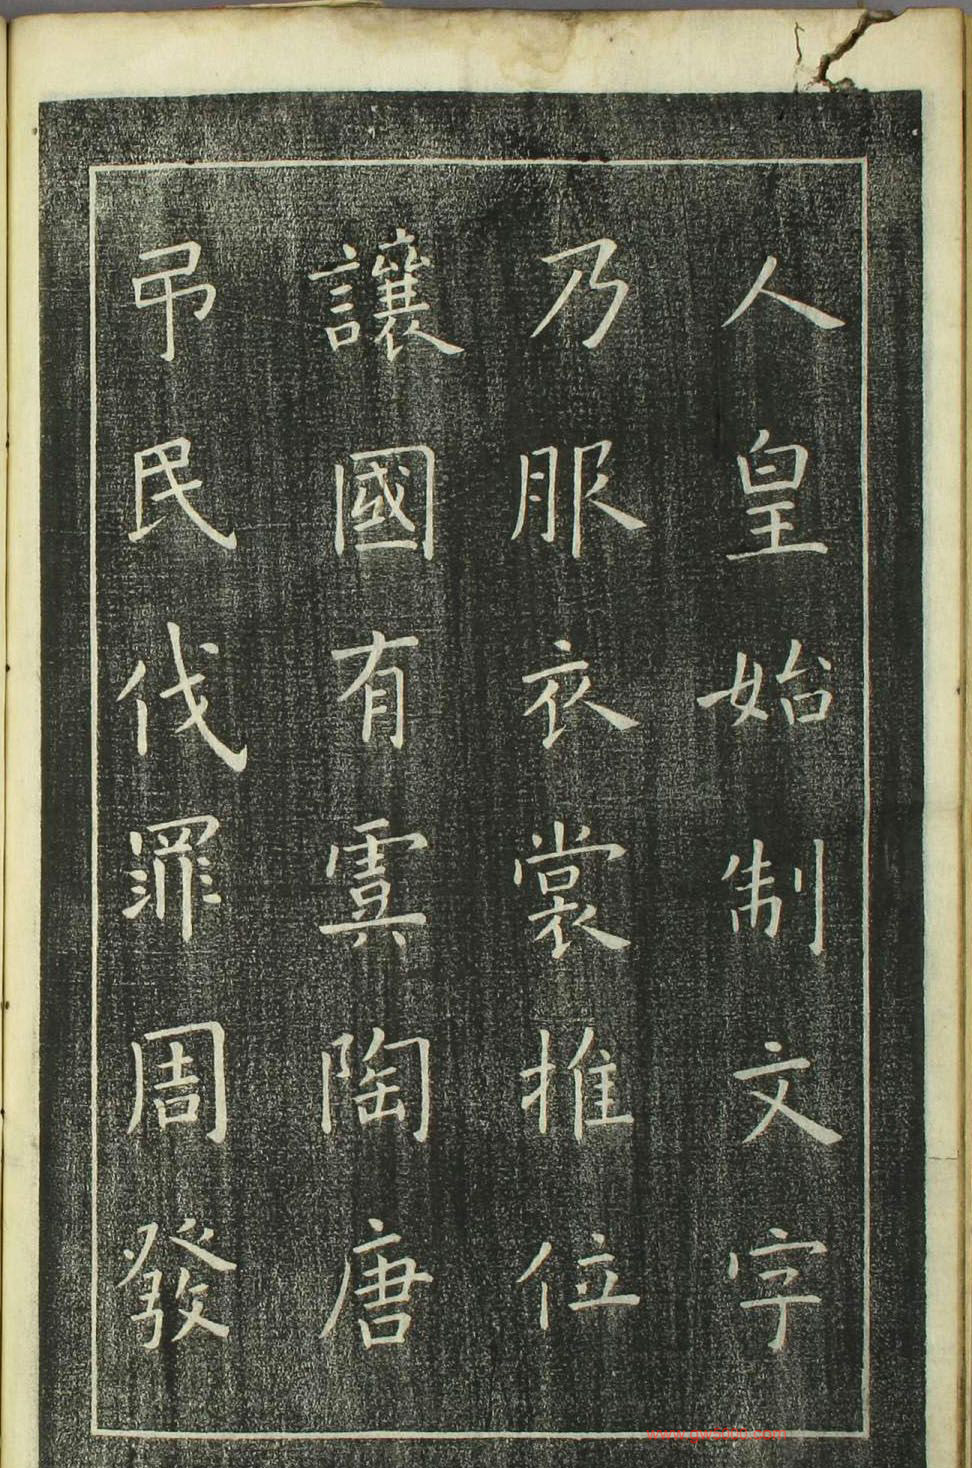 人皇始制文字
乃服衣裳推位
讓國有虞陶唐
弔民伐罪周發
www.gw5000.com